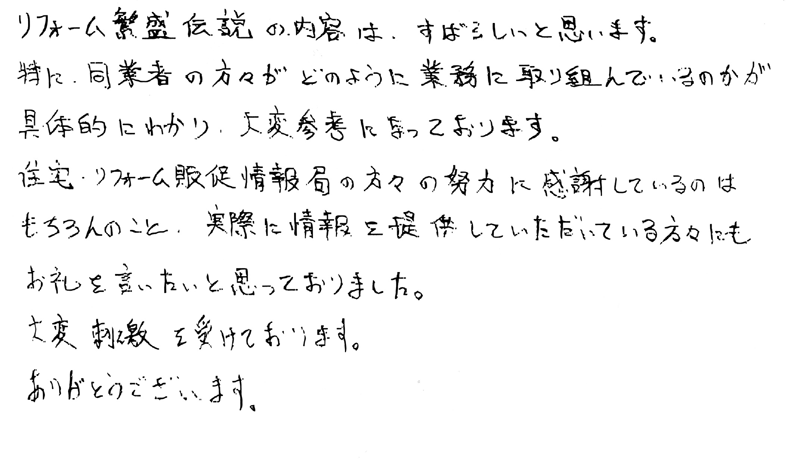 リフォーム繁盛伝説の内容は、すばらしいと思います。
特に、同業者の方々がどのように業務に取り組んでいるのかが
具体的にわかり、大変参考になっております。
住宅・リフォーム販促情報局の方々の努力に感謝しているのは
もちろんのこと、実際に情報を提供していただいている方々にも
お礼を言いたいと思っておりました。
大変刺激を受けております。
ありがとうございます。